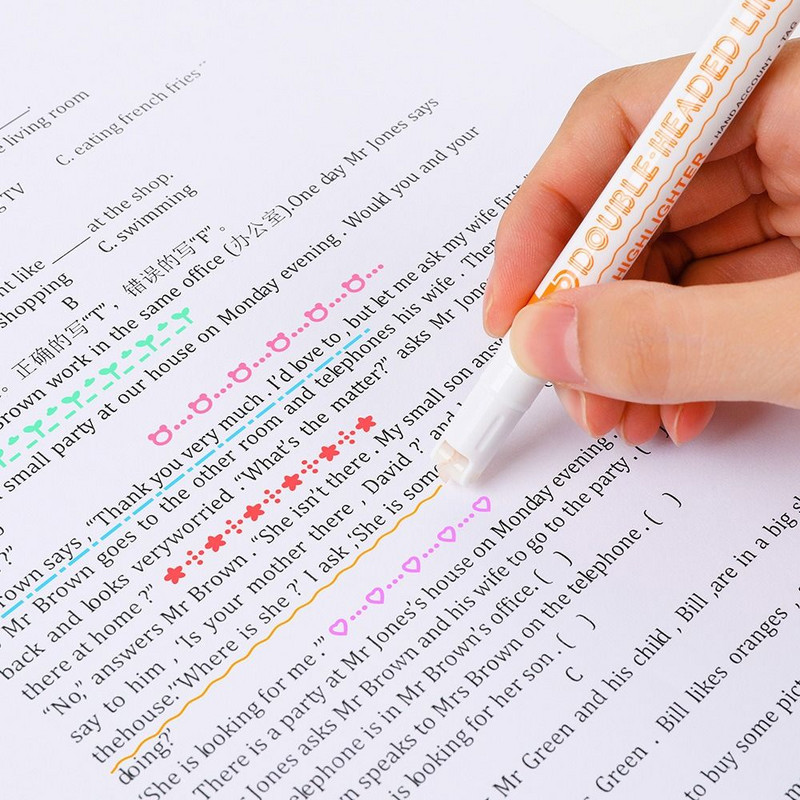 e living room
C. eating french fries
TV
____ at the shop.
nt like ____ C. swimming
shopping
B
。正确的写“T”，错误的写“F”。
brown work in the same office (办公室).One day Mr Jones says
small party at our house on Monday evening . Would you and your
?”
rown says ,“Thank you very much . I'd love to , but let me ask my wife first.”
Mr Brown goes to the other room and telephones his wife . The
back and looks veryworried .“What's the matter?” asks Mr Jone
there at home ?” “She isn't there . My small son answ
“No,” answers Mr Brown .
say to him , ‘Is your mother there , David ?’ and
thehouse.’‘Where is she ?’ I ask ,‘She is som
doing?’
‘She is looking for me .’”
There is a party at Mr Jones's house on Monday evening.
Jones asks Mr Brown and his wife to go to the party. ( )
elephone is in Mr Brown's office. ( )
n speaks to Mrs Brown on the telephone . ( )
is looking for her son . ( )
C
Mr Green and his child , Bill ,are in a big s
Green . Bill likes oranges ,
to buy some pict
DOUBLE·HEADED LIN
HIGHLIGHTER · HAND ACCOUNT · TAG